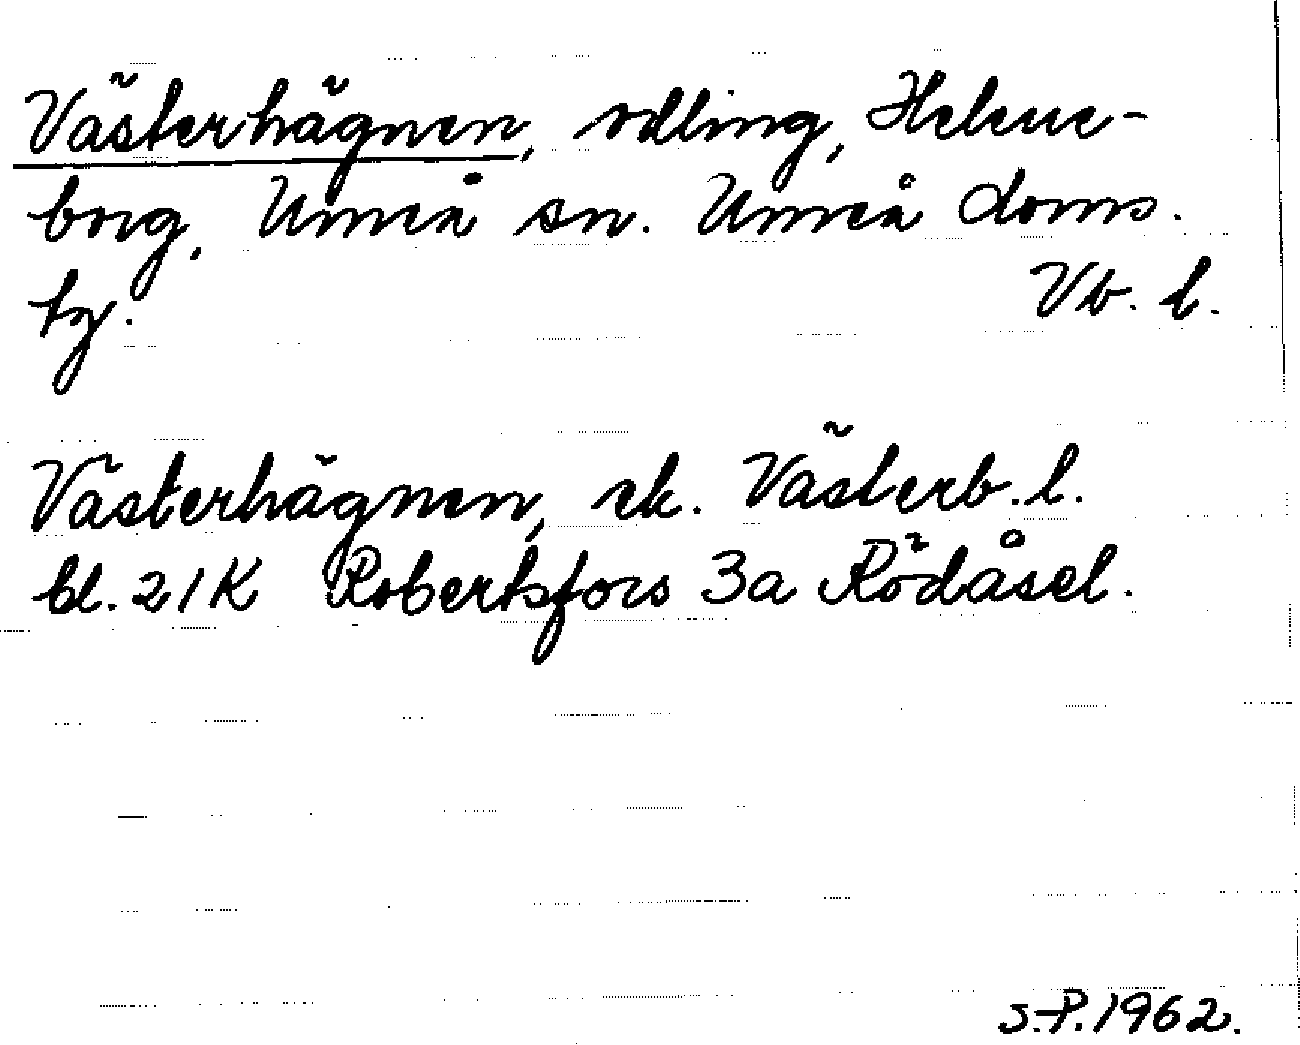 Västerhägnen, odling, Helene-
borg, Umeå sn. Umeå doms.
tg.
Vb. l.
Västerhägnen, ek. Västerb. l.
bl. 21K Robertsfors 3a Rödåsel.
S.P. 1962.